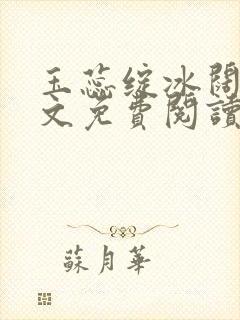 玉蕊绽冰闊
文免費閱讀
蘇月華